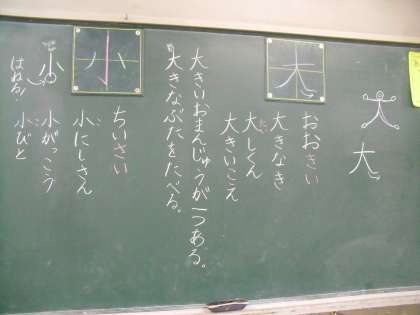 大
大
大
おおきい
大きなき
大しくん
たい
大きいこえ
大きいおまんじゅうが一つある。
大きなぶたをたべる。
小
ちいさい
小にしさん
こ
小がっこう
小びと
こ
小
はねる!